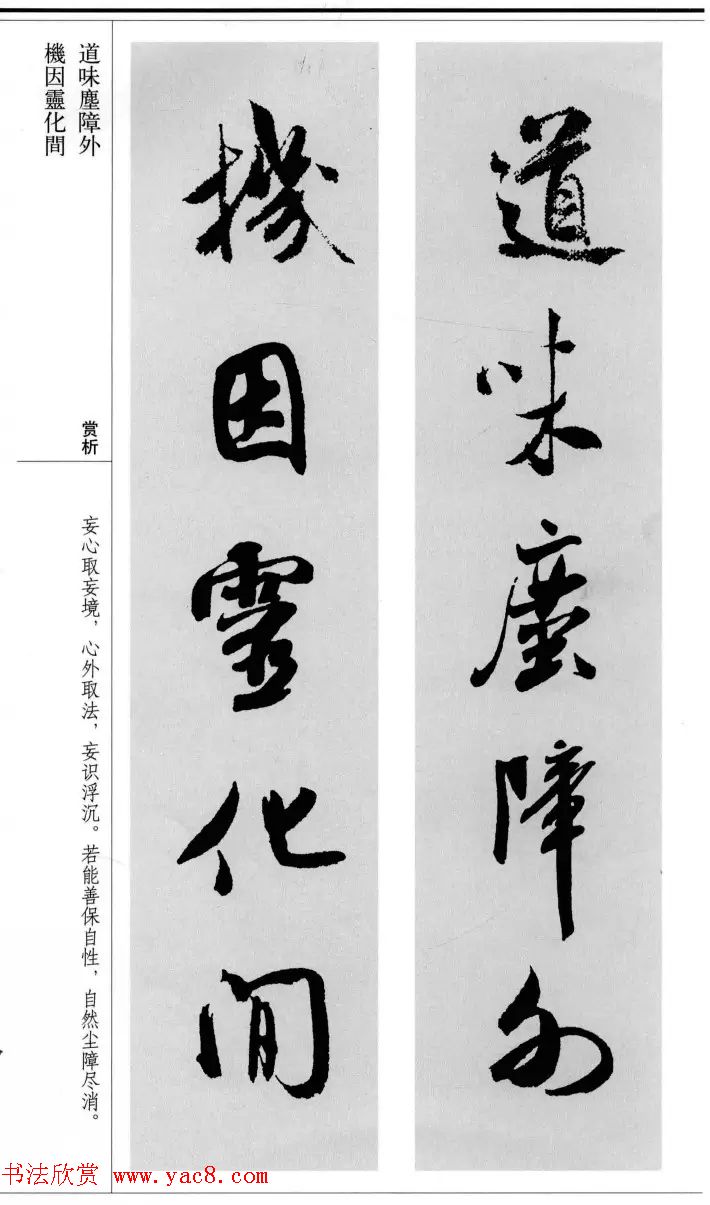 道味塵障外
機因靈化間
道味塵障外
機因靈化間
赏析
妄心取妄境，心外取法，妄识浮沉。若能善保自性，自然尘障尽消。
书法欣赏 www.yac8.com